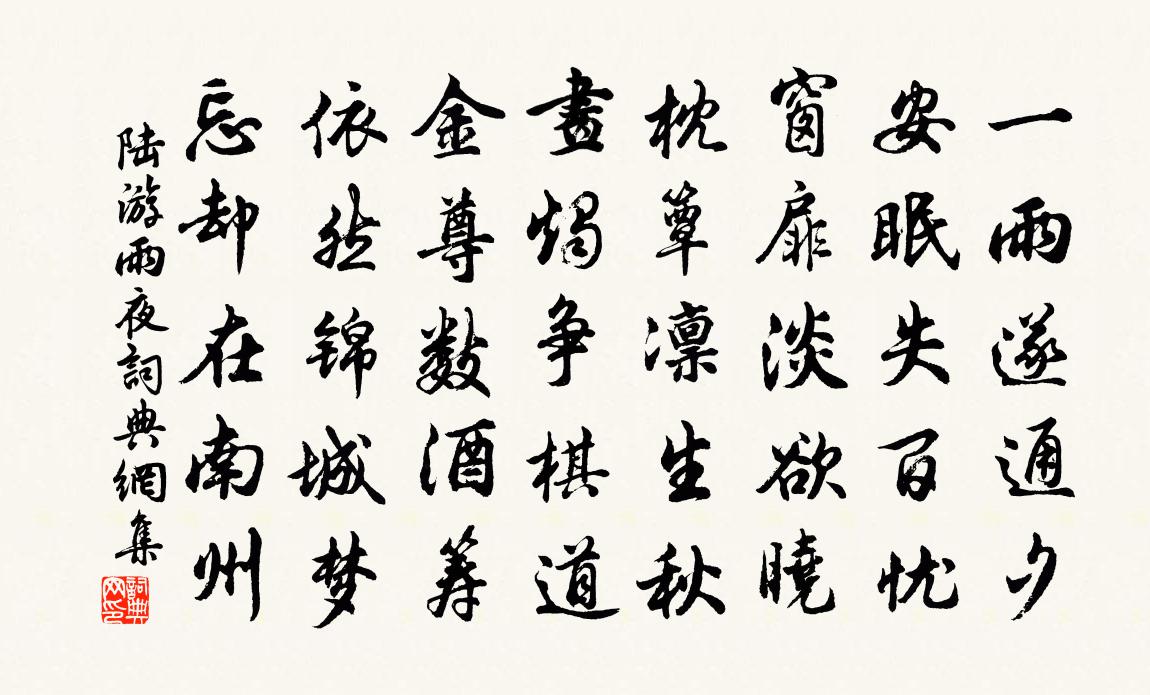 一雨遂通夕
安眠失百忧
窗扉淡欲曉
枕簟凛生秋
畫燭争棋道
金尊数酒筹
依然锦城梦
忘却在南州
陆游雨夜詞典網集
詞典网印